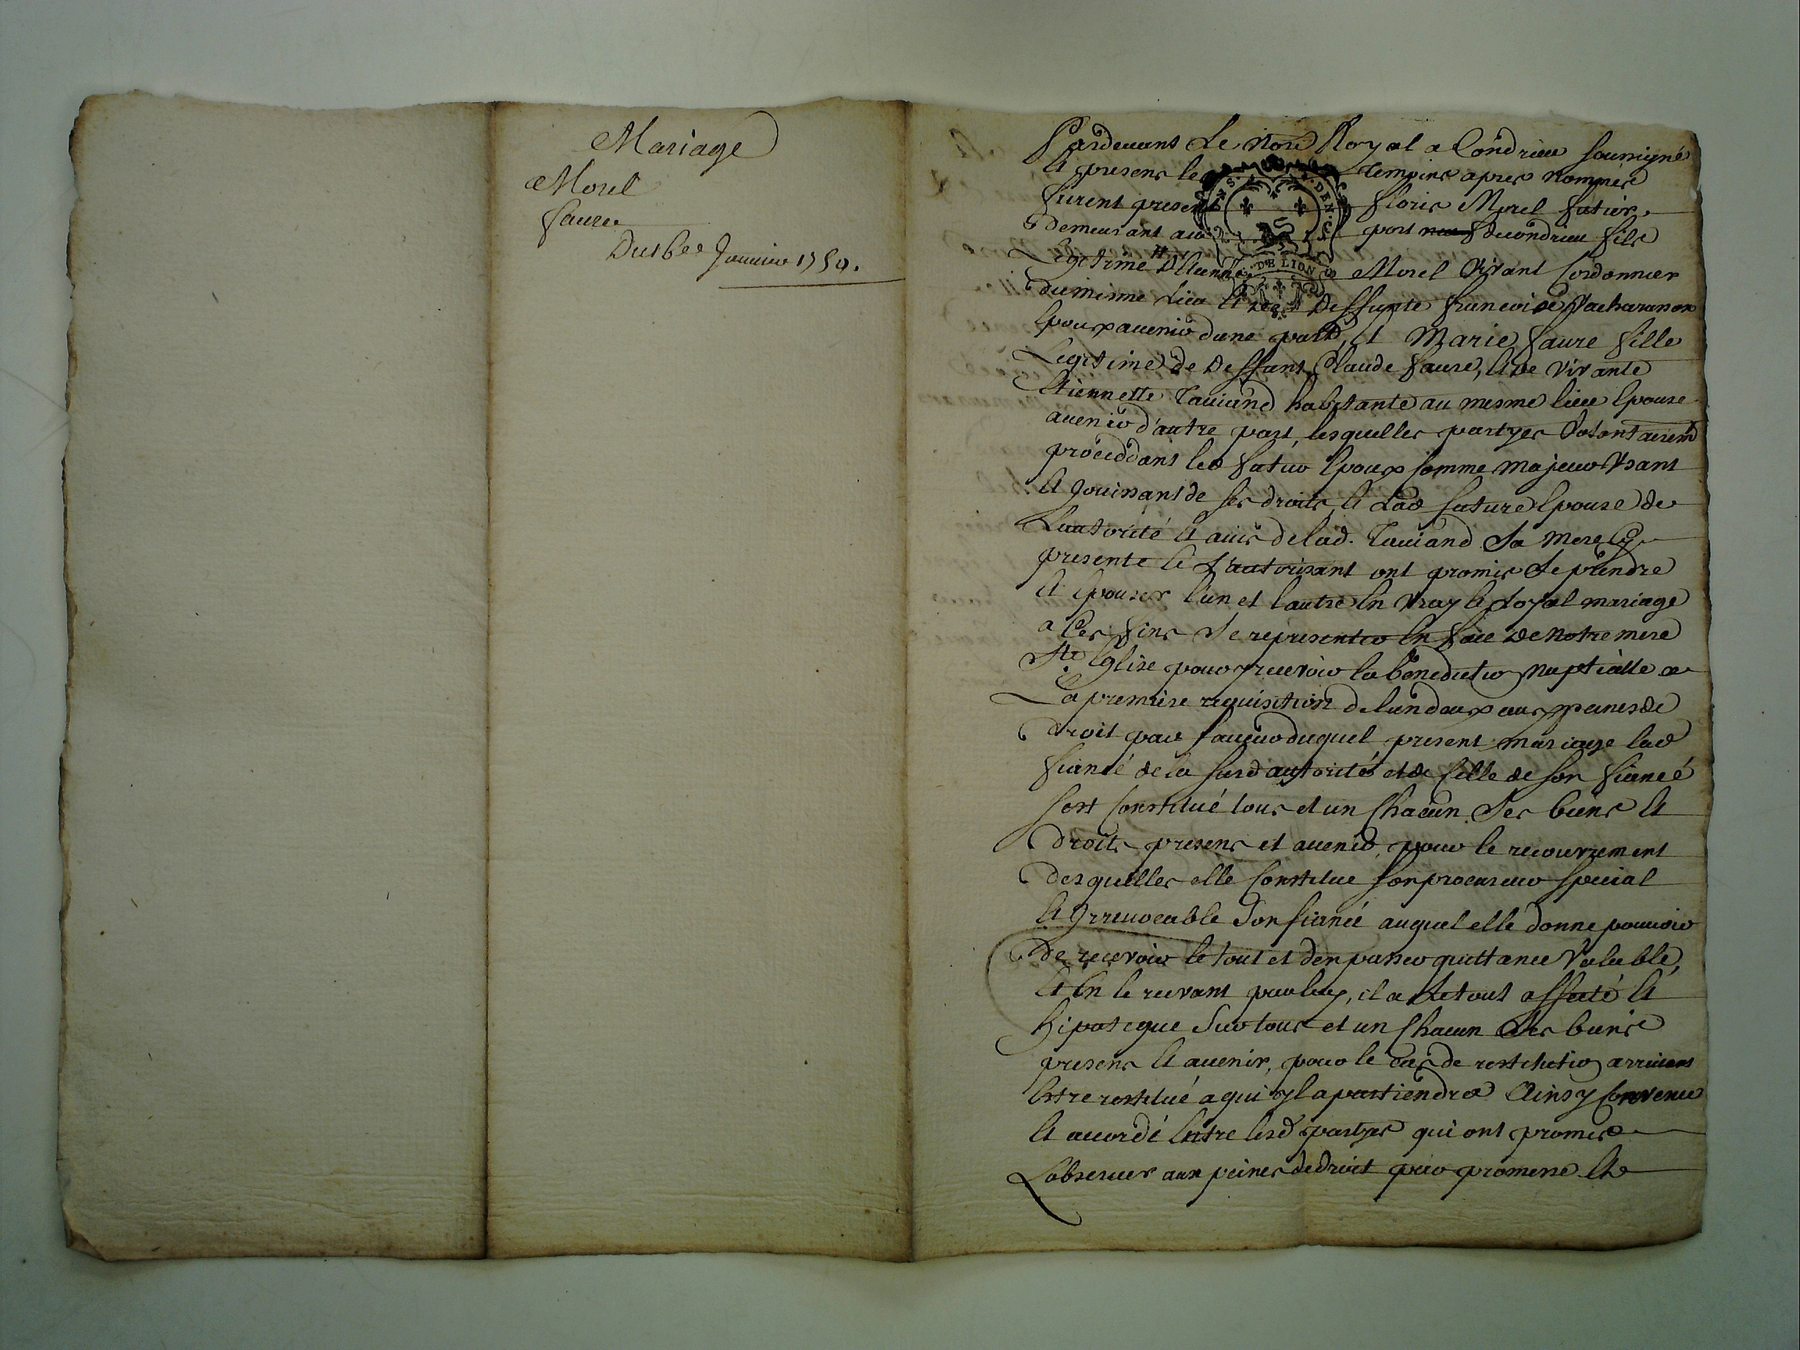 Mariage
Morel
faure
Du 16e Janvier 1750.
Pardevant Le Nore Royal a Condrieu soussigné
Et presens les temoins apres nommés
furent presents floris Morel futier
demeurant au port de condrieu fils
Legitime d'Etienne Morel vivant Cordonnier
du mesme lieu Et de deffunte francoise
Epoux avenir d'une part, Et Marie faure fille
Legitime de deffunt Claude faure, et de vivante
Etiennette Taviand habitante au mesme lieu Epouse
avenir d'autre part, lesquelles partyes volontairemt
proceddant led futur Epoux comme majeur usant
Et Jouissant de ses droits Et Lad future Epouse de
L'autorité Et avis de lad. Taviand Sa mere Cy
presente Et L'autorisant ont promis Se prendre
Et Epouser l'un et l'autre En vray Et loyal mariage
a Ces fins Se representer En face de notre mere
Ste Eglise pour y recevoir la benedictio nuptialle a
La premiere requisition de l'un d'eux aux peines de
droit par faveur duquel present mariage lad
fiancé de la susd autorité et de Celle de son fiancé
sest Constitué tous et un Chacun Ses biens Et
droits presens et avenir, pour le recouvrement
desquelles elle Constitue son procureur special
Et Irrevocable Son fiancé auquel elle donne pouvoir
de recevoir le tout et d'en passer quittance Valable,
Et En le recevant par luy, il a le tout affecté Et
hipoteque Sur tous et un Chacun Ses biens
presens Et avenir, pour le cas de restitutio arrivant
Estre restitué a qui Il apartiendra Ainsy Convenu
Et accordé Entre lesd partyes qui ont promis
L'observer aux peines de droit par promesse Et
DE LION